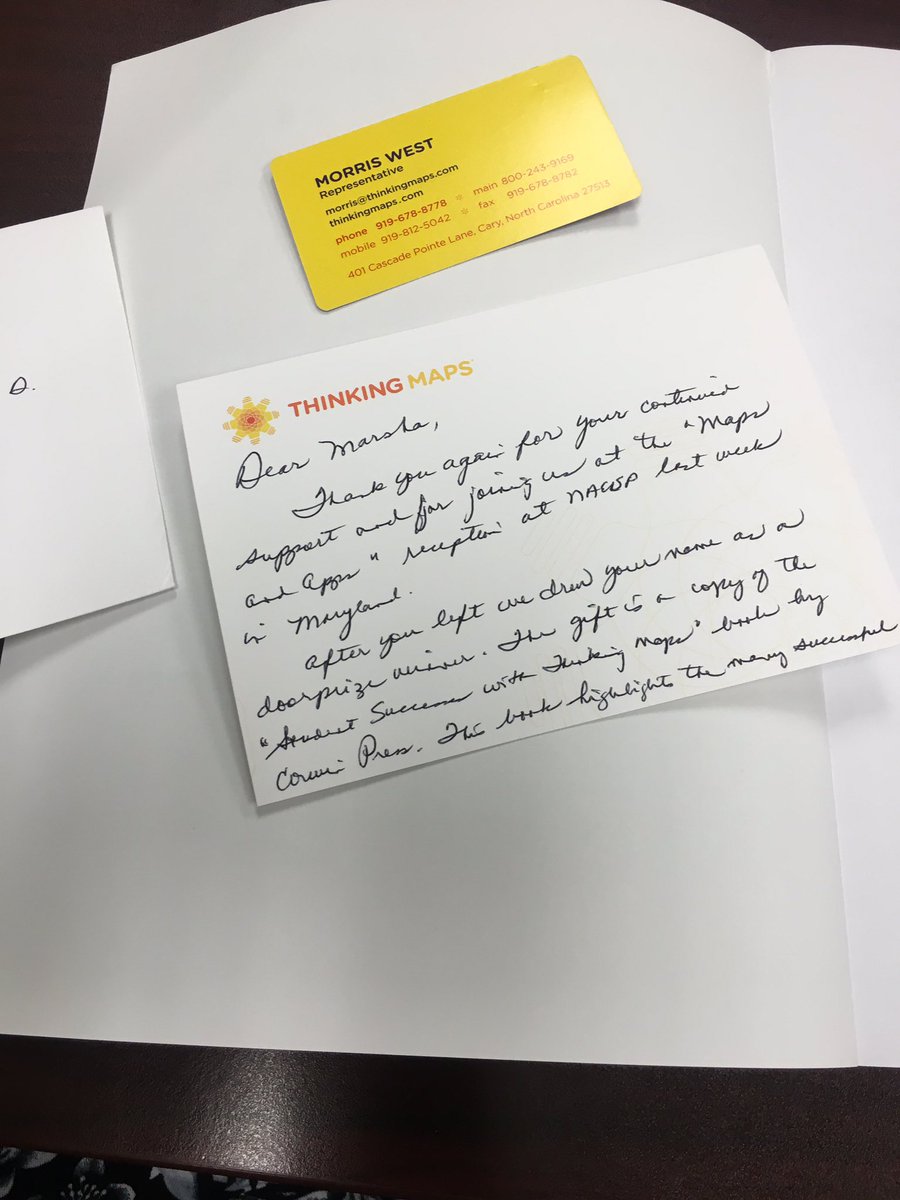 MORRIS WEST
Representative
morris@thinkingmaps.com
thinkingmaps.com
phone 919-678-8778 * main 800-243-9169
mobile 919-812-5042 * fax 919-678-8782
401 Cascade Pointe Lane, Cary, North Carolina 27513
D.
THINKING MAPS
Dear Marsha,
Thank you again for your continued
support and for joining us at the "Maps
and Apps" reception at NAESP last week
in Maryland.
After you left we drew your name as a
doorprize winner. The gift is a copy of the
"Student Success with Thinking Maps" book by
Corwin Press. This book highlights the many successful